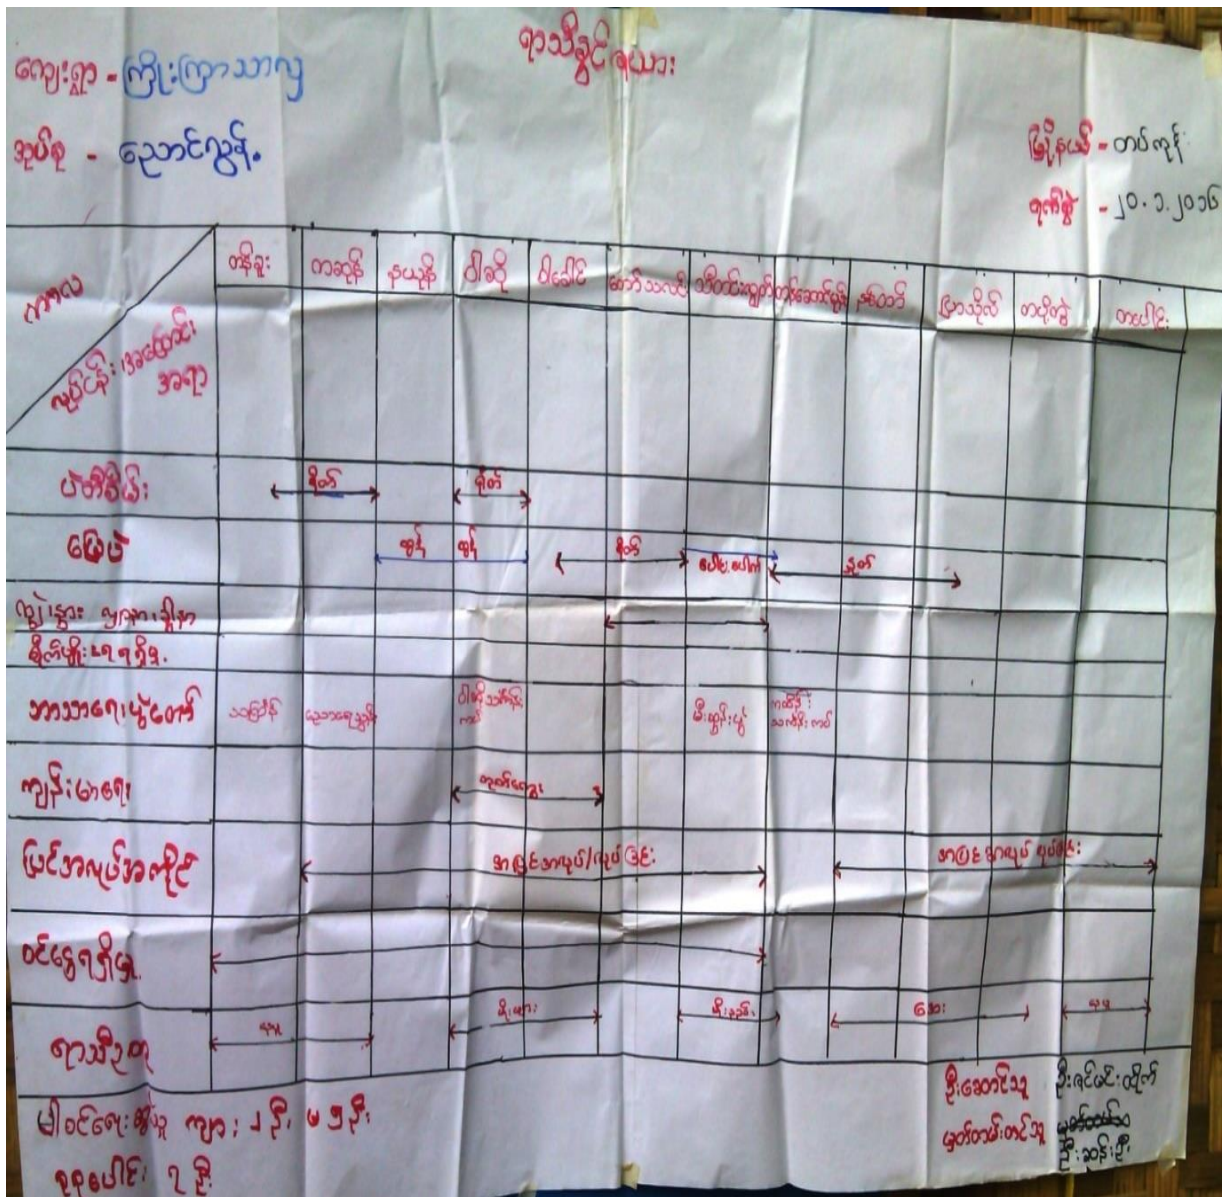 ရာသီခွင်ဇယား
ကျေးရွာ - ကြိုးကြာသာလှ
အုပ်စု - ညောင်လွန့်
မြို့နယ် - တပ်ကုန်း
ရက်စွဲ - ၂၀.၁.၂၀၁၆
ကာလ
လုပ်ငန်း/အကြောင်းအရာ
တန်ခူး ကဆုန် နယုန် ဝါဆို ဝါခေါင် တော်သလင်း သီတင်းကျွတ် တန်ဆောင်မုန်း နတ်တော် ပြာသိုလ် တပို့တွဲ တပေါင်း
ပဲတီစိမ်း စိုက် ရိတ်
မြေပဲ ထွန် ထွန် စိုက် ပေါင်း နုတ်
ကျွဲ၊နွား
ဘာသာရေးပွဲတော် သင်္ကြန် ညောင်ရေသွန်း ဝါဆိုသင်္ကန်းကပ် မီးထွန်းပွဲ ကထိန်သင်္ကန်းကပ်
ကျန်းမာရေး တုတ်ကွေး
ပြင်ပအလုပ်အကိုင် အခြားအလုပ်/လုပ်ခြင်း အခြားအလုပ်လုပ်ခြင်း
ဝင်ငွေရရှိမှု
ရာသီဥတု ပူ မိုးများ မိုးနည်း အေး ပူ
ပါဝင်ဆွေးနွေးသူ ကျား ၂ ဦး မ ၅ ဦး
စုစုပေါင်း ၇ ဦး
ဦးဆောင်သူ ဦးဇင်မင်းထိုက်
မှတ်တမ်းတင်သူ